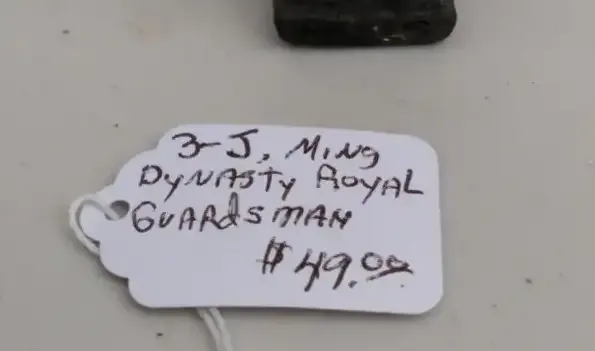 3-J, Ming
Dynasty Royal
Guardsman
$49.00